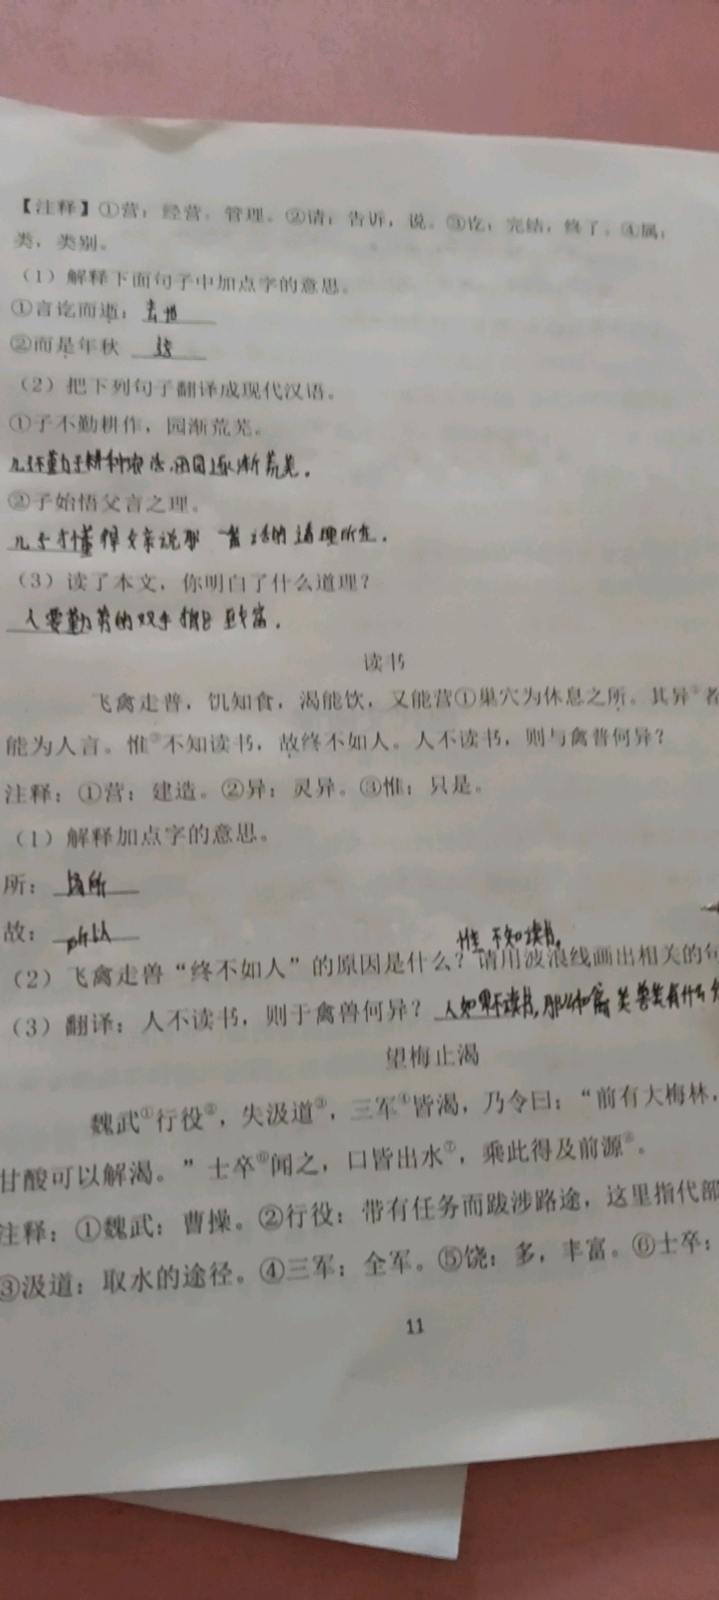 【注释】①营：经营，管理。②请：告诉，说。③讫：完结，终了。④属：
类，类别。
（1）解释下面句子中加点字的意思。
①言讫而逝：去世
②而是年秋 这
（2）把下列句子翻译成现代汉语。
①子不勤耕作，园渐荒芜。
儿子不勤于耕种农活,田园逐渐荒芜.
②子始悟父言之理。
儿子才懂得父亲说那一番话的道理所在.
（3）读了本文，你明白了什么道理？
人要勤劳的双手致富.
读书
飞禽走兽，饥知食，渴能饮，又能营①巢穴为休息之所。其异②者
能为人言。惟③不知读书，故终不如人。人不读书，则与禽兽何异？
注释：①营：建造。②异：灵异。③惟：只是。
（1）解释加点字的意思。
所：场所
故：所以
惟不知读书,
（2）飞禽走兽“终不如人”的原因是什么？请用波浪线画出相关的句
（3）翻译：人不读书，则于禽兽何异？人如果不读书,那么和禽类兽类有什么
望梅止渴
魏武①行役②，失汲道③，三军④皆渴，乃令曰：“前有大梅林，
甘酸可以解渴。”士卒⑥闻之，口皆出水⑦，乘此得及前源⑧。
注释：①魏武：曹操。②行役：带有任务而跋涉路途，这里指代部
③汲道：取水的途径。④三军：全军。⑤饶：多，丰富。⑥士卒：
11